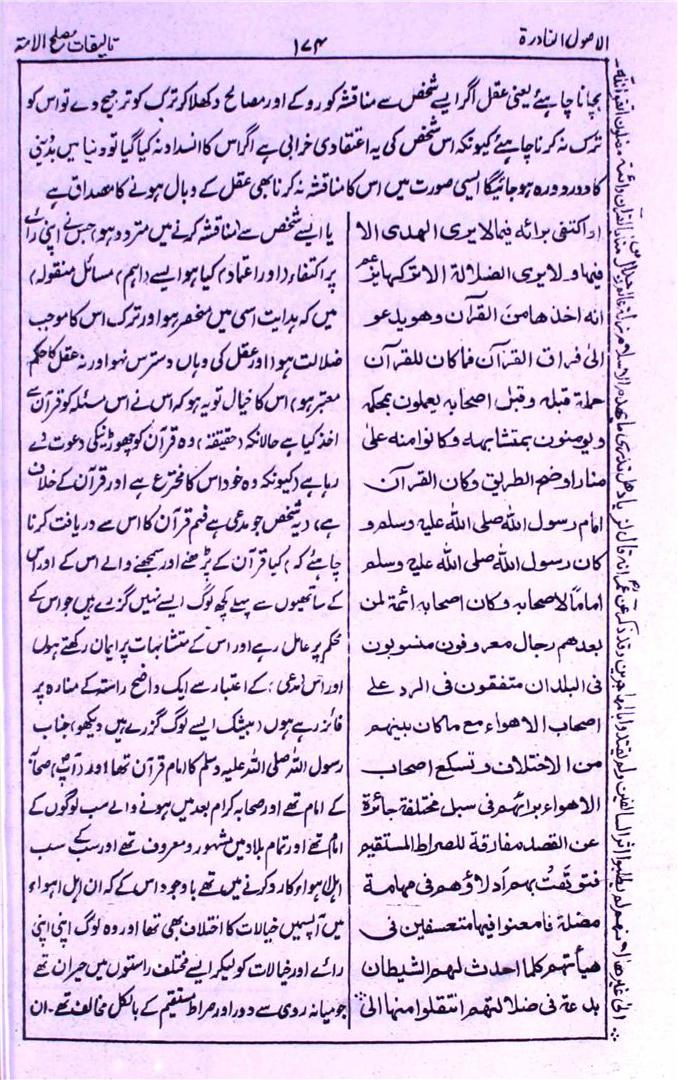 الاصول النادرة
۱۷۴
تالیفات مصلح الامۃ
بچانا چاہئے یعنی عقل اگر ایسے شخص سے مناقشہ کو روکے اور مصالح دکھلا کر ترک کو ترجیح دے تو اس کو
ترک نہ کرنا چاہئے کیونکہ اس شخص کی یہ اعتقادی خرابی ہے اگر اس کا انسداد نہ کیا گیا تو دنیا میں بد دینی
کا دور دورہ ہو جائیگا ایسی صورت میں اس کا مناقشہ نہ کرنا بھی عقل کے وبال ہونے کا مصداق ہے
او اکتفی برائہ فیما لا یری الهدی الا
فیها ولا یری الضلالة الا ترکها یزعم
انه اخذها من القرآن وهو یدعو
الی فراق القرآن فما کان للقرآن
حملة قبله وقبل اصحابه یعملون بمحکمه
ویومنون بمتشابهه وکانوا منه علی
منار اوضح الطریق وکان القرآن
امام رسول الله صلی الله علیه وسلم و
کان رسول الله صلی الله علیه وسلم
اماما لاصحابه وکان اصحابه ائمة لمن
بعدهم رجال معروفون منسوبون
فی البلدان متفقون فی الرد علی
اصحاب الاهواء مع ما کان بینهم
من الاختلاف وتسکع اصحاب
الاهواء برائهم فی سبل مختلفة جائرة
عن القصد مفارقة للصراط المستقیم
فتوتهت بهم ادلاؤهم فی مهامة
مضلة فامعنوا فیها متعسفین فی
هیأتهم کلما احدث لهم الشیطان
بدعة فی ضلالتهم انتقلوا منها الی
یا ایسے شخص سے (مناقشہ کرنے میں متردد ہو) جس نے اپنی رائے
پر اکتفاء (اور اعتماد) کیا ہو ایسے (اہم) مسائل منقولہ
میں کہ ہدایت اسی میں منحصر ہو اور ترک اس کا موجب
ضلالت ہو (اور عقل کی وہاں دسترس نہو اور نہ عقل کا حکم
معتبر ہو) اس کا خیال تو یہ ہو کہ اس نے اس مسئلہ کو قرآن سے
اخذ کیا ہے حالانکہ (حقیقۃ) وہ قرآن کو چھوڑنیکی دعوت دے
رہا ہے (کیونکہ وہ خود اس کا مخترع ہے اور قرآن کے خلاف
ہے، یہ شخص جو مدعی ہے فہم قرآن کا اس سے دریافت کرنا
چاہئے کہ) کیا قرآن کے پڑھنے اور سمجھنے والے اس کے اور اس
کے ساتھیوں سے پہلے کچھ لوگ ایسے نہیں گزرے ہیں جو اس کے
محکم پر عامل رہے اور اس کے متشابہات پر ایمان رکھتے ہوں
اور اس (مدعی) کے اعتبار سے ایک واضح راستہ کے منارہ پر
فائز رہے ہوں (بیشک ایسے لوگ گزرے ہیں دیکھو) جناب
رسول اللہ صلی اللہ علیہ وسلم کا امام قرآن تھا اور (آپ) صحابہ
کے امام تھے اور صحابہ کرام بعد میں ہونے والے سب لوگوں کے
امام تھے اور تمام بلاد میں مشہور و معروف تھے اور سب کے سب
اہل اہواء کا رد کرنے میں تھے باوجود اس کے کہ ان اہل اہواء
میں آپسمیں خیالات کا اختلاف بھی تھا اور وہ لوگ اپنی اپنی
رائے اور خیالات کو لیکر ایسے مختلف راستوں میں حیران تھے
جو میانہ روی سے دور اور صراط مستقیم کے بالکل مخالف تھے۔ ان